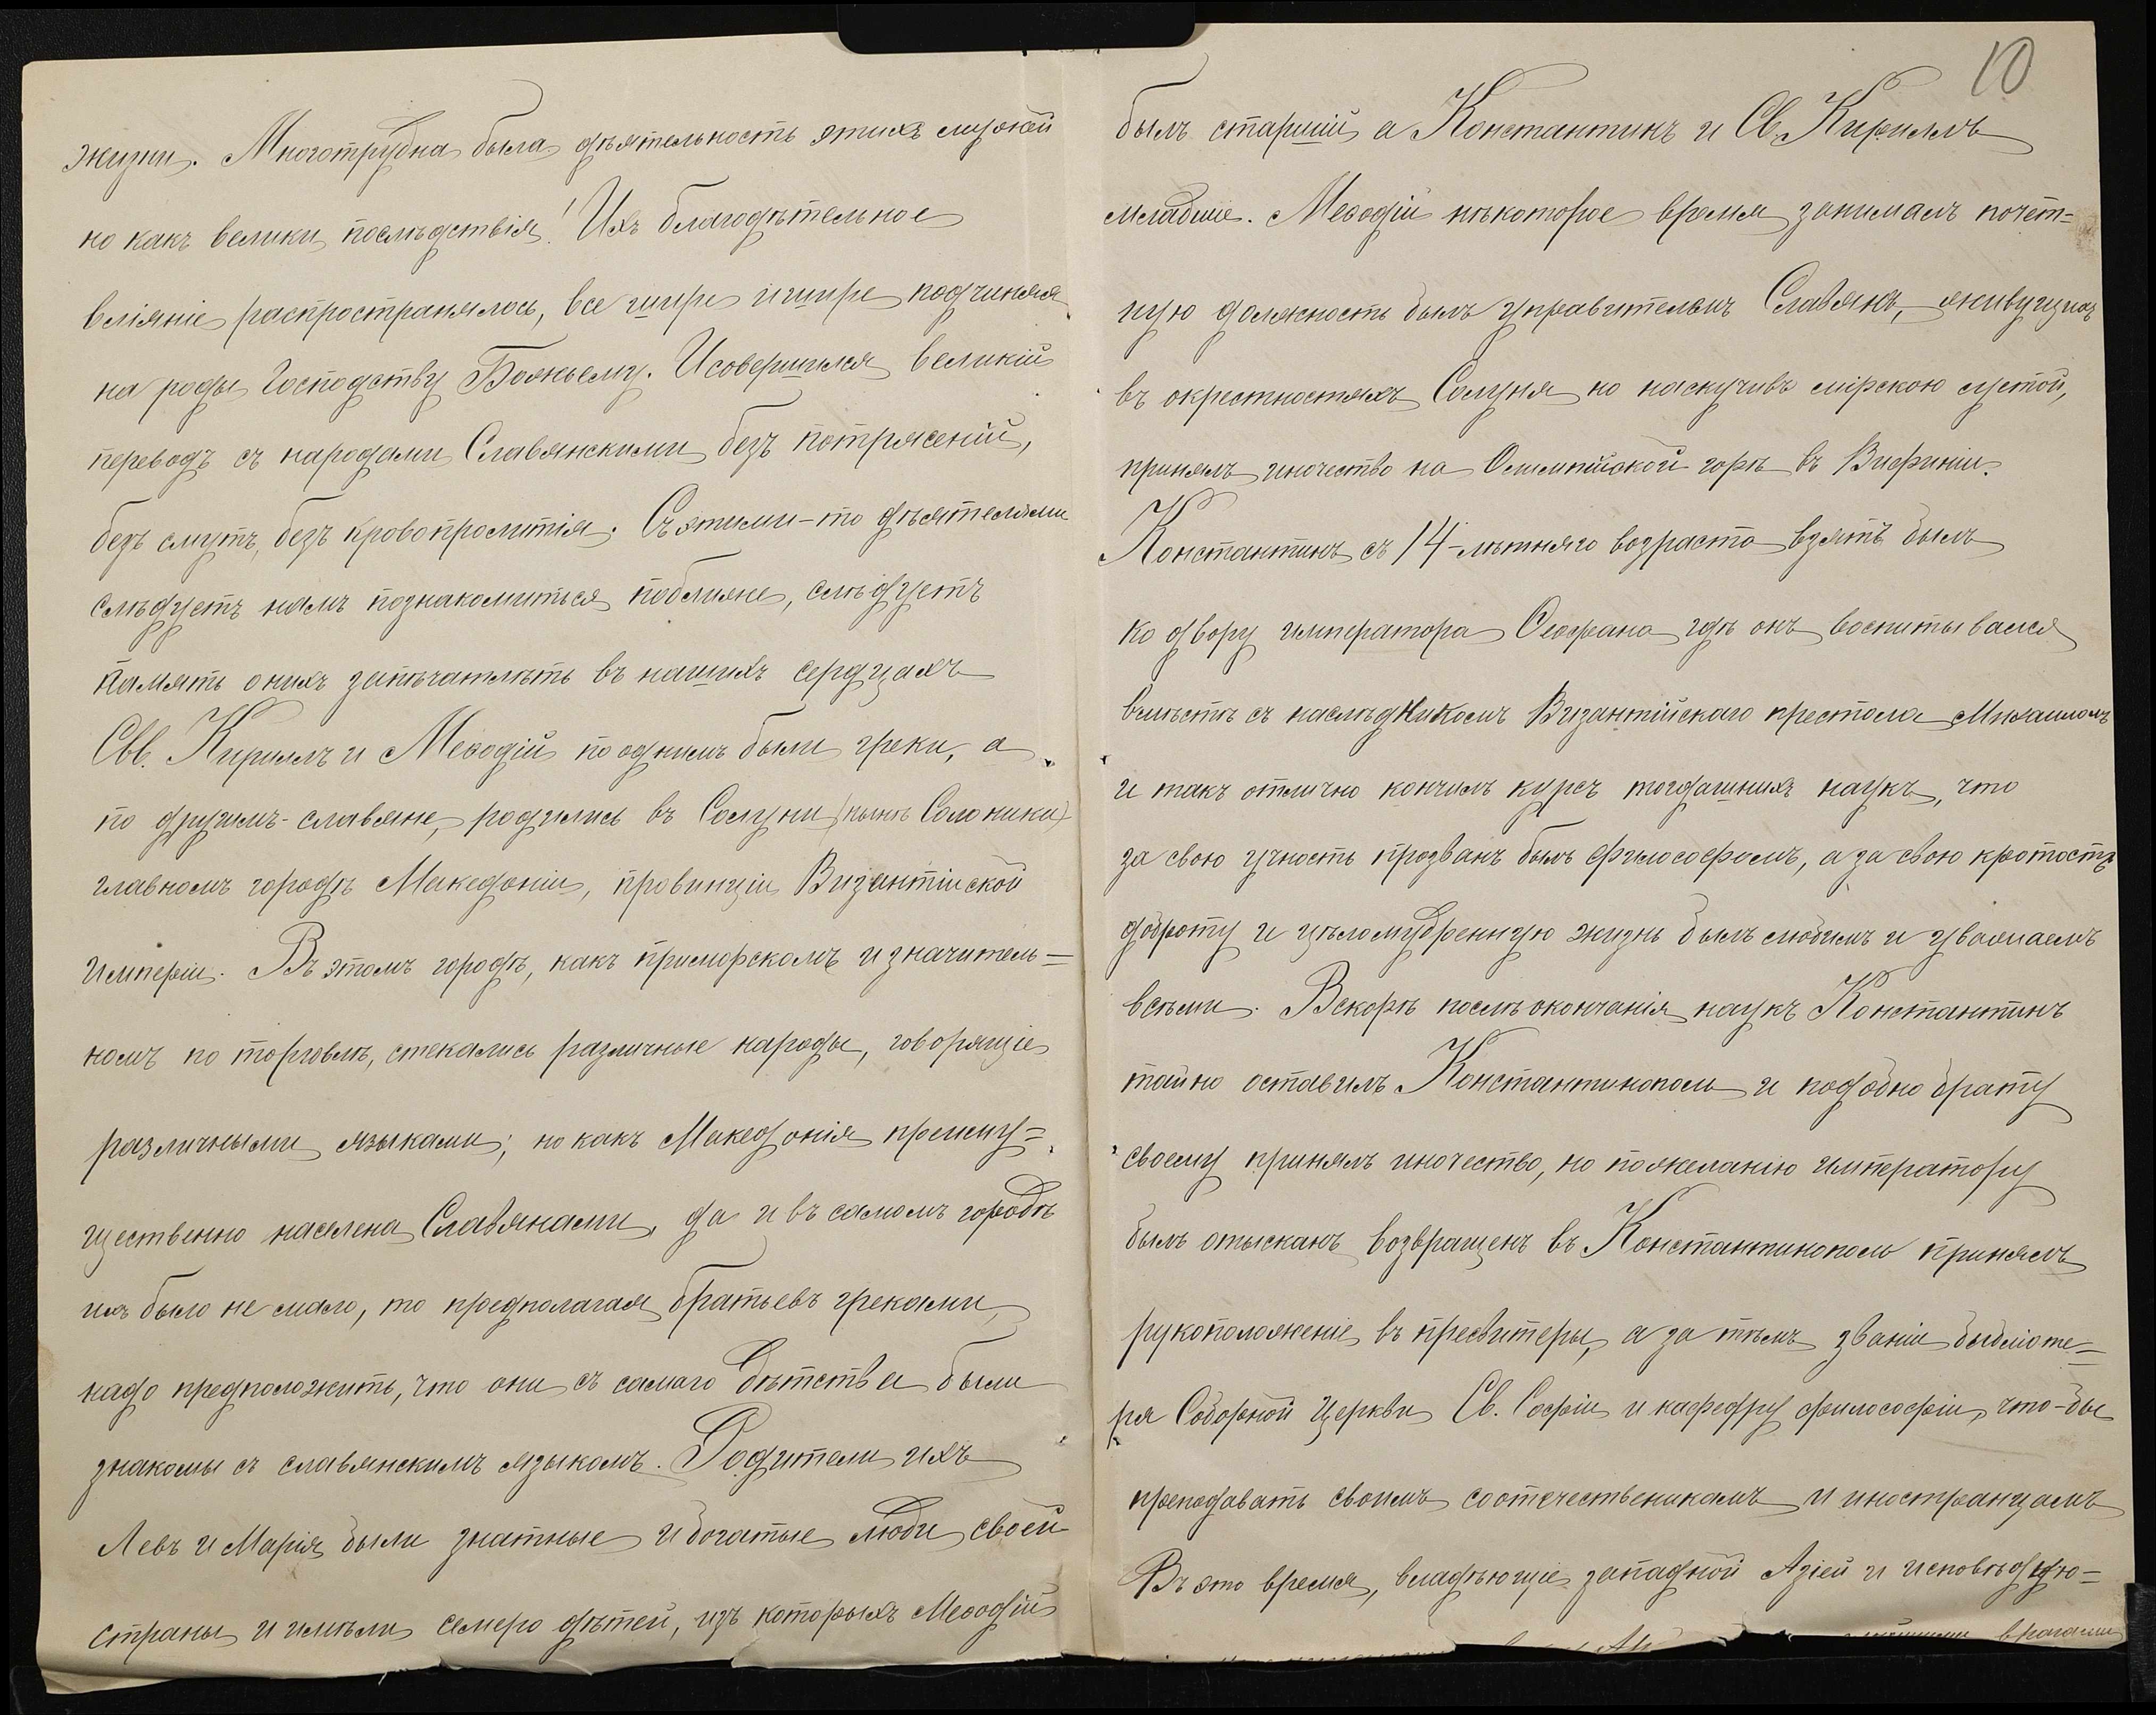 жизни. Многотрудна была дѣятельность этихъ мужей
но какъ велики послѣдствія! Ихъ благодѣтельное
вліяніе распространялось, все шире и шире подчиняя
на роды Господству Божьему. И совершился великій
переводъ съ народами Славянскими безъ потрясеній,
безъ смутъ, безъ кровопролитія. Съ этими-то дѣятелями
слѣдуетъ намъ познакомиться поближе, слѣдуетъ
память о нихъ запѣчатлѣть въ нашихъ сердцахъ
Свв. Кириллъ и Меѳодій по однимъ были греки, а
по другимъ-славяне, родились въ Солуни (нынѣ Солоники)
главномъ городѣ Македоніи, провинціи Византійской
Имперіи. Въ этомъ городѣ, какъ приморскомъ и значитель=
номъ по торговлѣ, стекались различные народы, говорящіе
различными языками; но какъ Македонія преиму=
щественно населена Славянами, да и въ самомъ городѣ
ихъ было не мало, то предполагая братьевъ греками,
надо предположить, что они съ самаго дѣтства были
знакомы съ славянскимъ языкомъ. Родители ихъ
Левъ и Марія были знатные и богатые люди своей
страны и имѣли семеро дѣтей, изъ которыхъ Меѳодій
10
былъ старшій а Константинъ и Св. Кириллъ
младшіе. Меѳодій нѣкоторое время занималъ почет=
ную должность былъ управителемъ Славянъ, живущихъ
въ окрестностяхъ Солуня но наскучивъ мірскою суетой,
принялъ иночество на Олимпійской горѣ въ Вифиніи.
Константинъ съ 14-лѣтняго возраста взятъ былъ
ко двору императора Феофана гдѣ онъ воспитывался
вмѣстѣ съ наслѣдникомъ Византійскаго престола Михаиломъ
и такъ отлично кончилъ курсъ тогдашнихъ наукъ, что
за свою учность прозванъ былъ философомъ, а за свою кротость
доброту и цѣломудренную жизнь былъ любимъ и уважаемъ
всѣми. Вскорѣ послѣ окончанія наукъ Константинъ
тайно оставилъ Константинополь и подобно брату
своему принялъ иночество, но по желанію императору
былъ отысканъ возвращенъ въ Константинополь принялъ
рукоположеніе въ пресвитеры, а за тѣмъ званіи библіоте=
ря Соборной Церкви Св. Софіи и кафедру философіи, что-бы
преподавать своимъ соотечественикамъ и иностранцамъ
Въ это время, владѣющіе западной Азіей и исповѣдую=
врагами